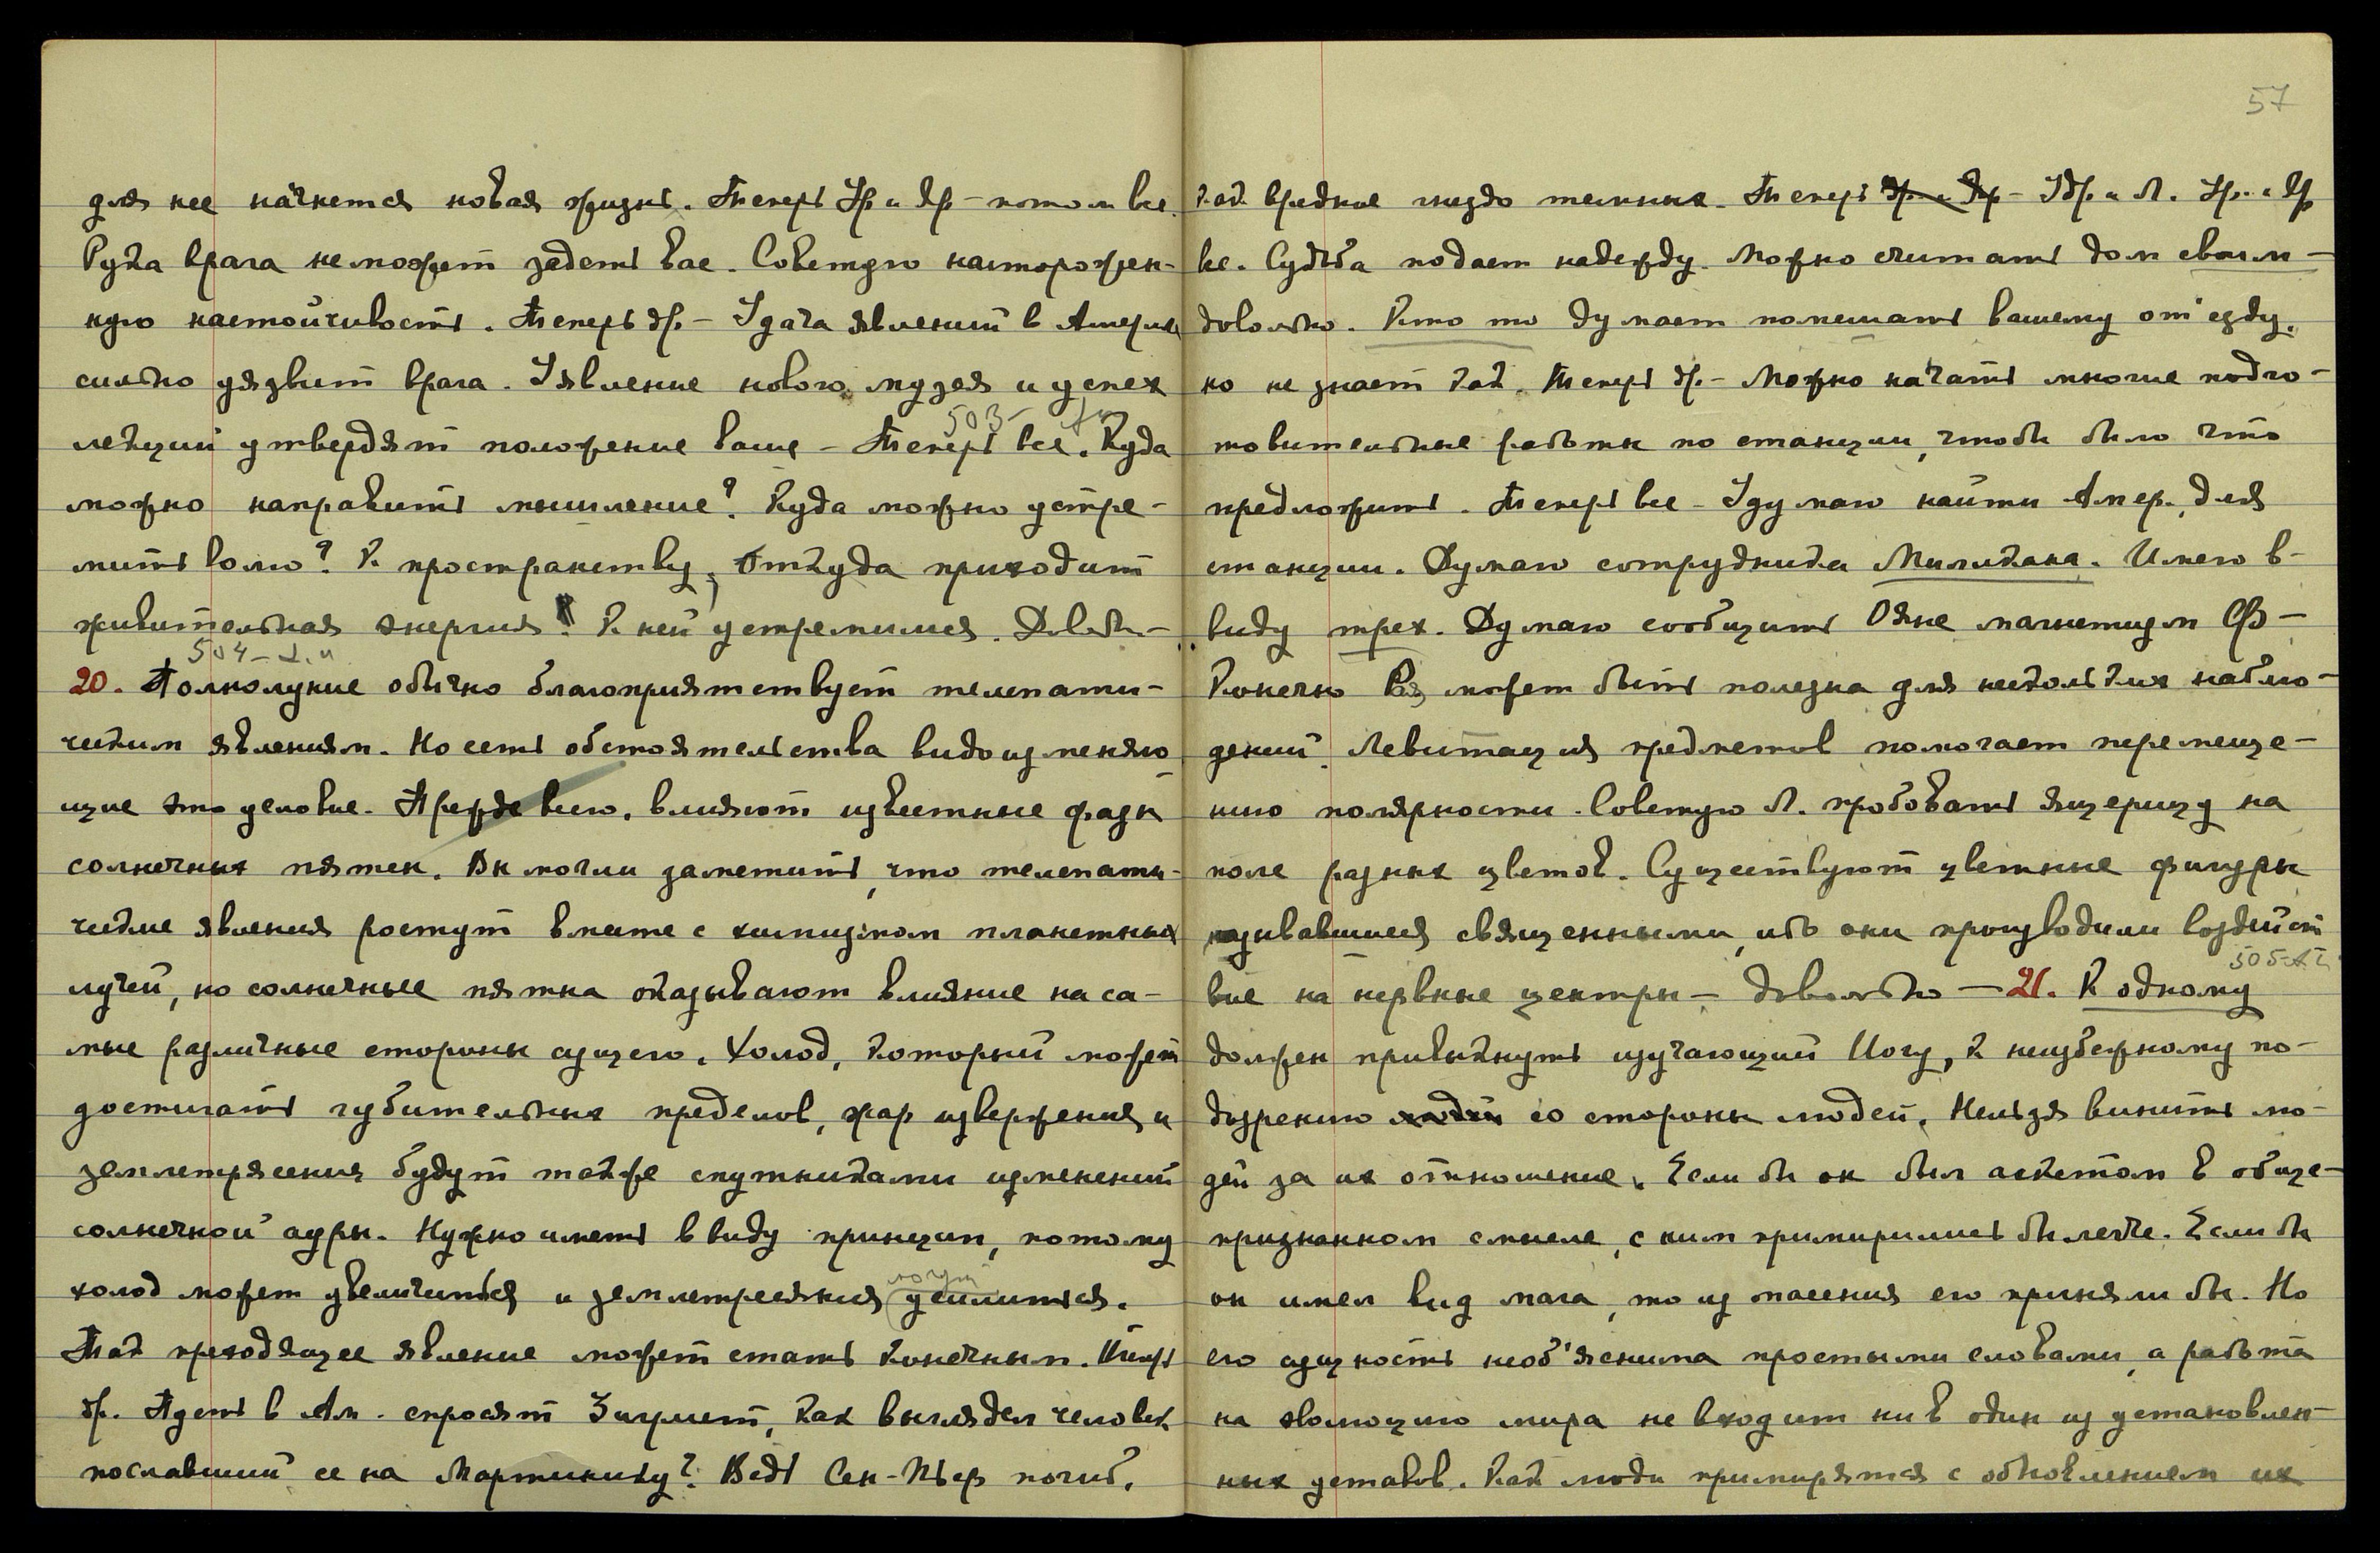 для нее начнется новая жизнь. Теперь Ур и Яр – потом все.
Рука врага не может задеть вас. Советую насторожен-
ную настойчивость. Теперь Яр. – Удача явлений в Америке
сильно уязвит врага. Уявление нового музея и успех
503 –
лекций утвердят положение ваше – Теперь все. Куда
можно направить мышление? Куда можно устре-
мить волю? К пространству, откуда приходит
живительная энергия! К ней устремимся. Довольно –
504 –
20. Полнолуние обычно благоприятствует телепати-
ческим явлениям. Но есть обстоятельства видоизменяю
щие это условие. Прежде всего, влияют известные фазы
солнечных пятен. Вы могли заметить, что телепати-
ческие явления ростут вместе с химизмом планетных
лучей, но солнечные пятна оказывают влияние на са-
мые различные стороны сущего. Холод, который может
достигать губительных пределов, жар извержения и
землетрясения будут также спутниками изменений
солнечной ауры. Нужно иметь в виду принцип, потому
могут
холод может увеличиться и землетресяния усилиться.
Так преходящее явление может стать конечным. Теперь
Яр. Пусть в Ам. спросят Зигрмет, как выглядел человек
пославший ее на Мартинику? Ведь Сен-Пьер погиб,
57
как вредное гнездо темных. Теперь Ур. и Яр – Удр. и Л. Ур. и Яр
все. Судьба подает надежду. Можно считать дом своим –
довольно. Кто то думает помешать вашему от'езду,
но не знает как. Теперь Яр. – Можно начать многие подго-
товительные работы по станции, чтобы было что
предложить. Теперь все – Удумаю найти Амер. для
станции. Думаю сотрудника Миликана. Имею в-
виду трех. Думаю сообщить Ояне магнетизм Ф –
Конечно Рая может быть полезна для нескольких наблю-
дений. Левитация предметов помогает перемеще-
нию полярности. Советую Л. пробовать ящерицу на
поле разных цветов. Существуют цветные фигуры
называвшиеся священными, ибо они производили воздейст
505 –
вие на нервные центры – довольно – 21. К одному
должен привыкнуть изучающий Йогу, к неизбежному по-
дозрению людей со стороны людей. Нельзя винить лю-
дей за их отношение. Если бы он был аскетом в обще-
признанном смысле, с ним примирились бы легче. Если бы
он имел вид мага, то из опасения его приняли бы. Но
его сущность необ'яснима простыми словами, а работа
на эволюцию мира не входит ни в один из установлен-
ных уставов. Как люди примирятся с обновлением их